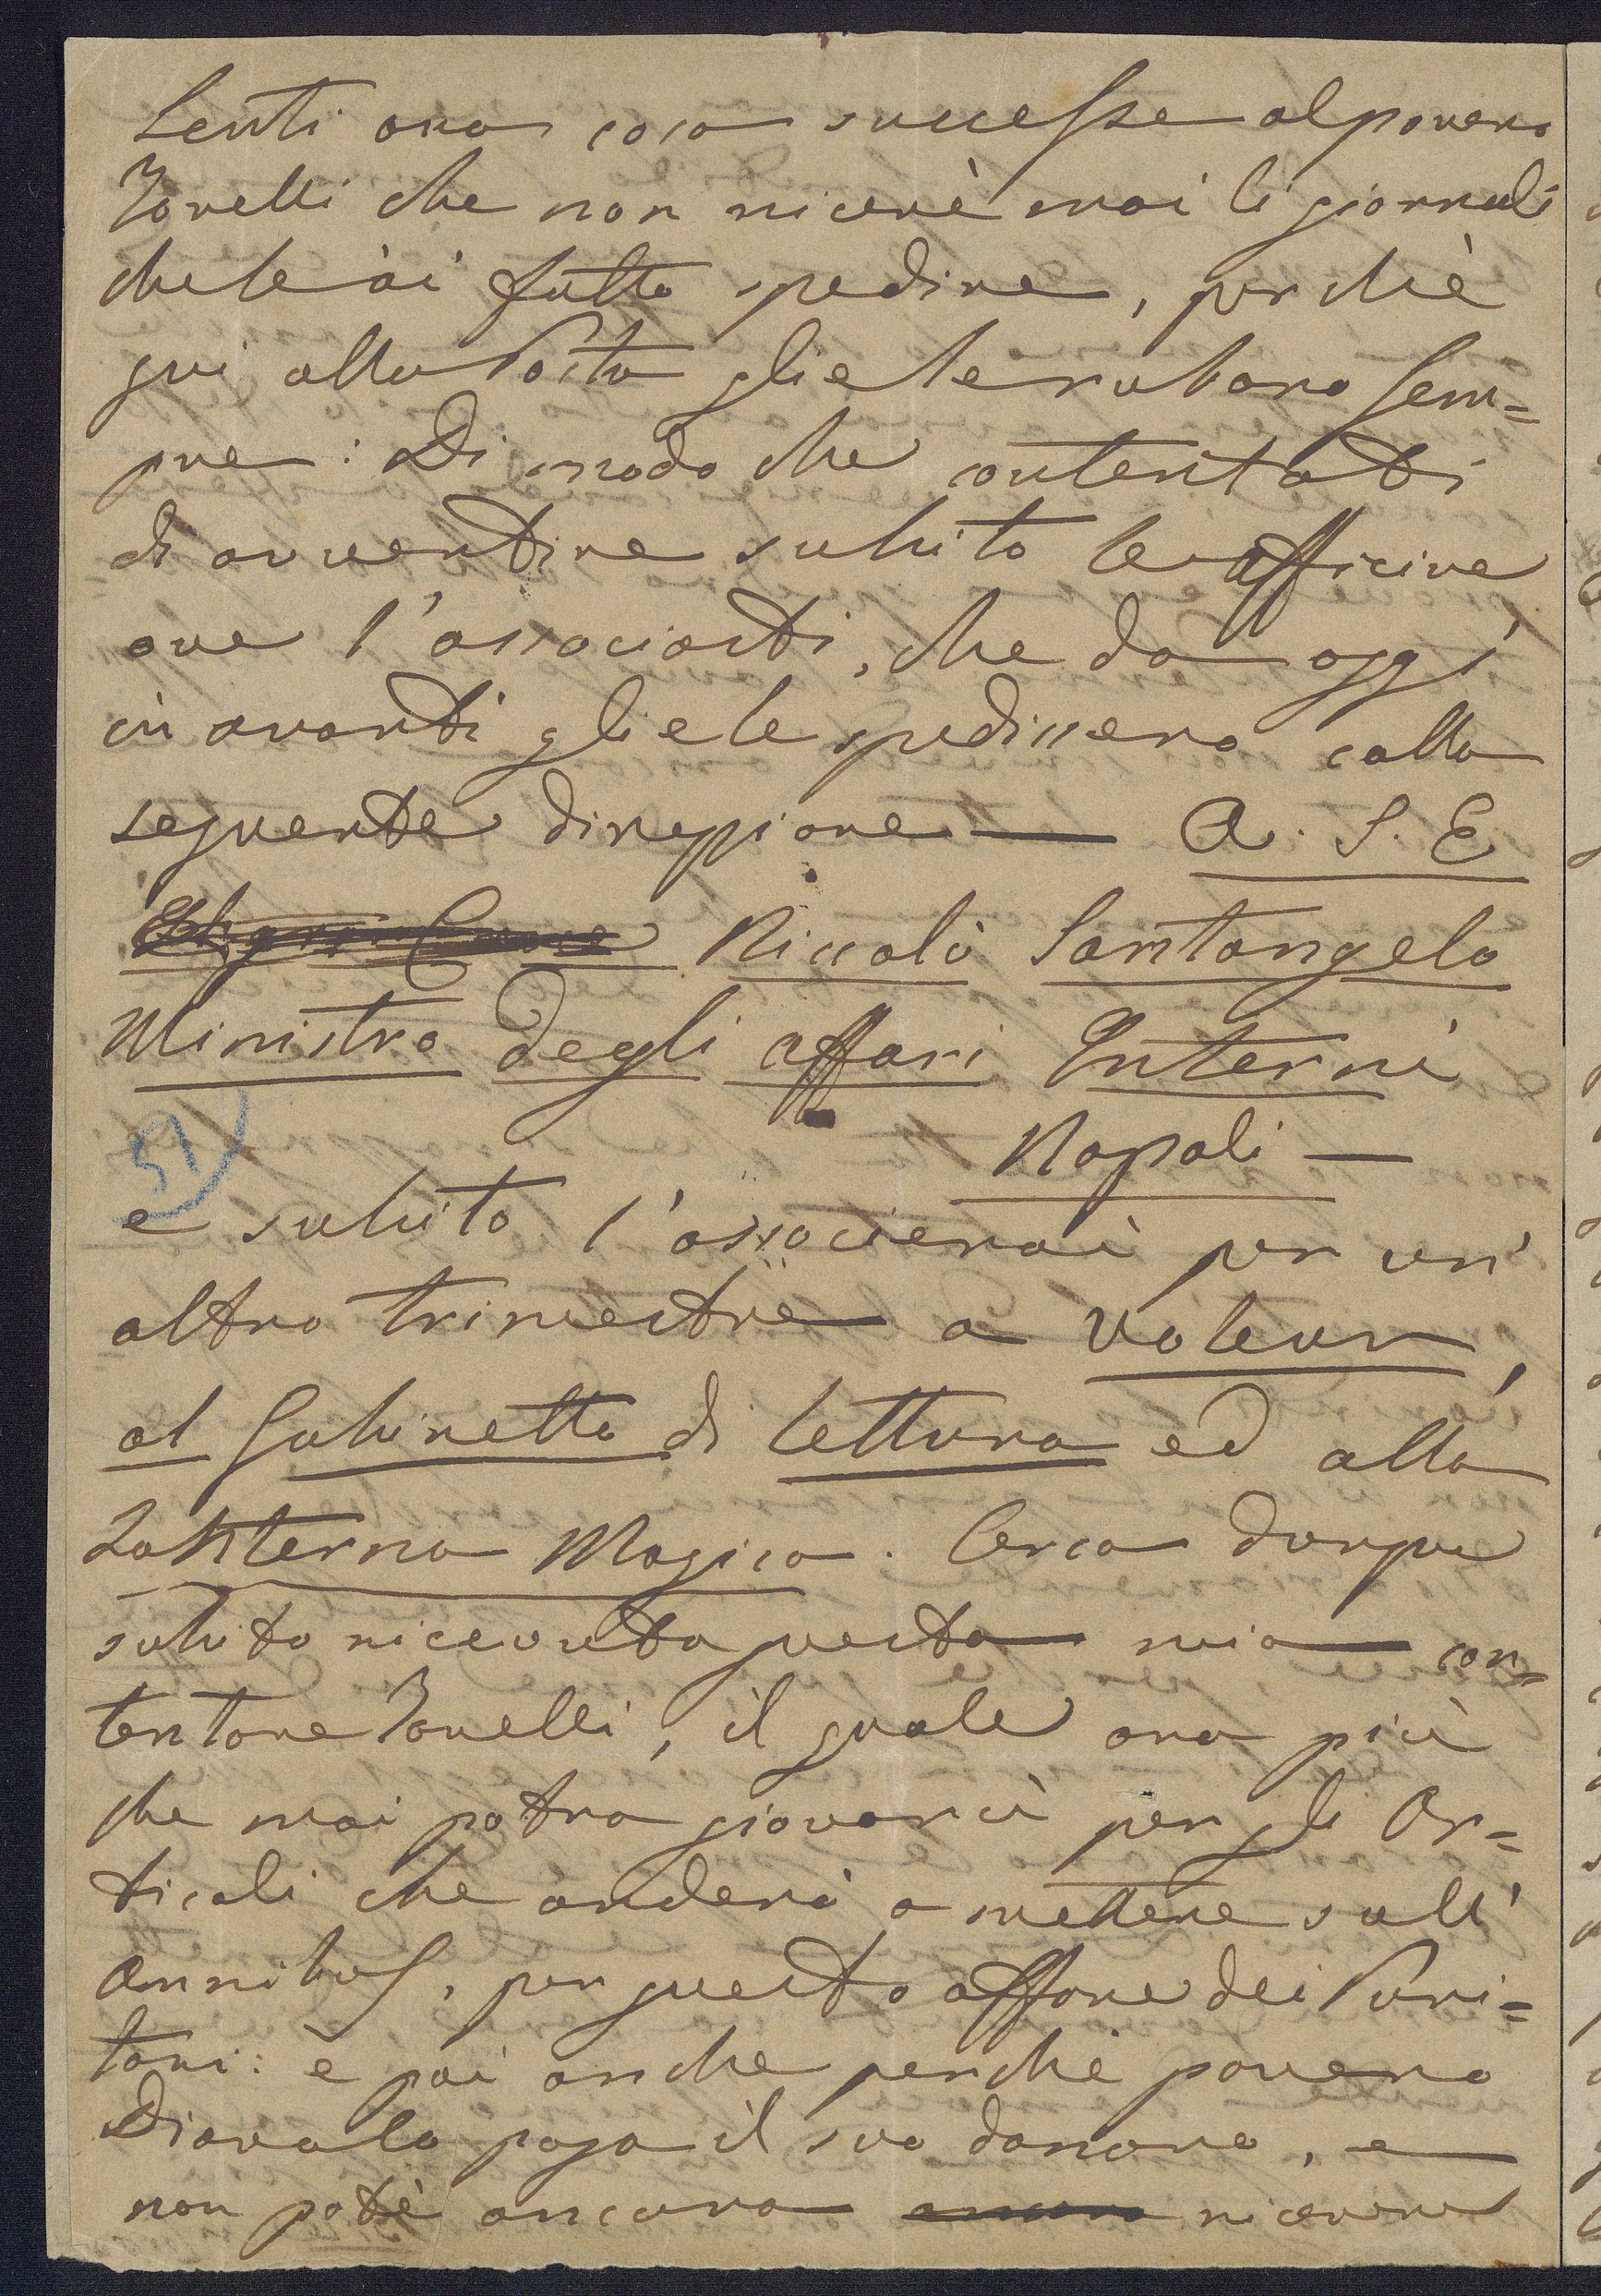 Senti ora cosa successe al povero
Torelli che non ricevè mai li giornali
che le ài fatto spedire, perchè
qui alla Posta gliele rubano sem=
pre: Di modo che contentati
di avvertire subito le officine
ove l'associasti, che da oggi
in avanti gliele spedissero colla
seguente direzzione — A. S. E
Niccolò Santangelo
Ministro degli affari Interni
Napoli —
51
e subito l'associerai per un'
altro trimestre a Voleur,
al Gabinetto di lettura ed alla
Lanterna Magica. Cerca dunque
subito ricevuta questa mia con=
tentare Torelli, il quale ora più
che mai potra giovarci per gli Ar=
ticoli che anderà a mettere sull'
Omnibus, per questo affare dei Puri=
tani: è poi anche perchè povero
Diavolo paga il suo danaro, e
non potè ancora ancora ricevere